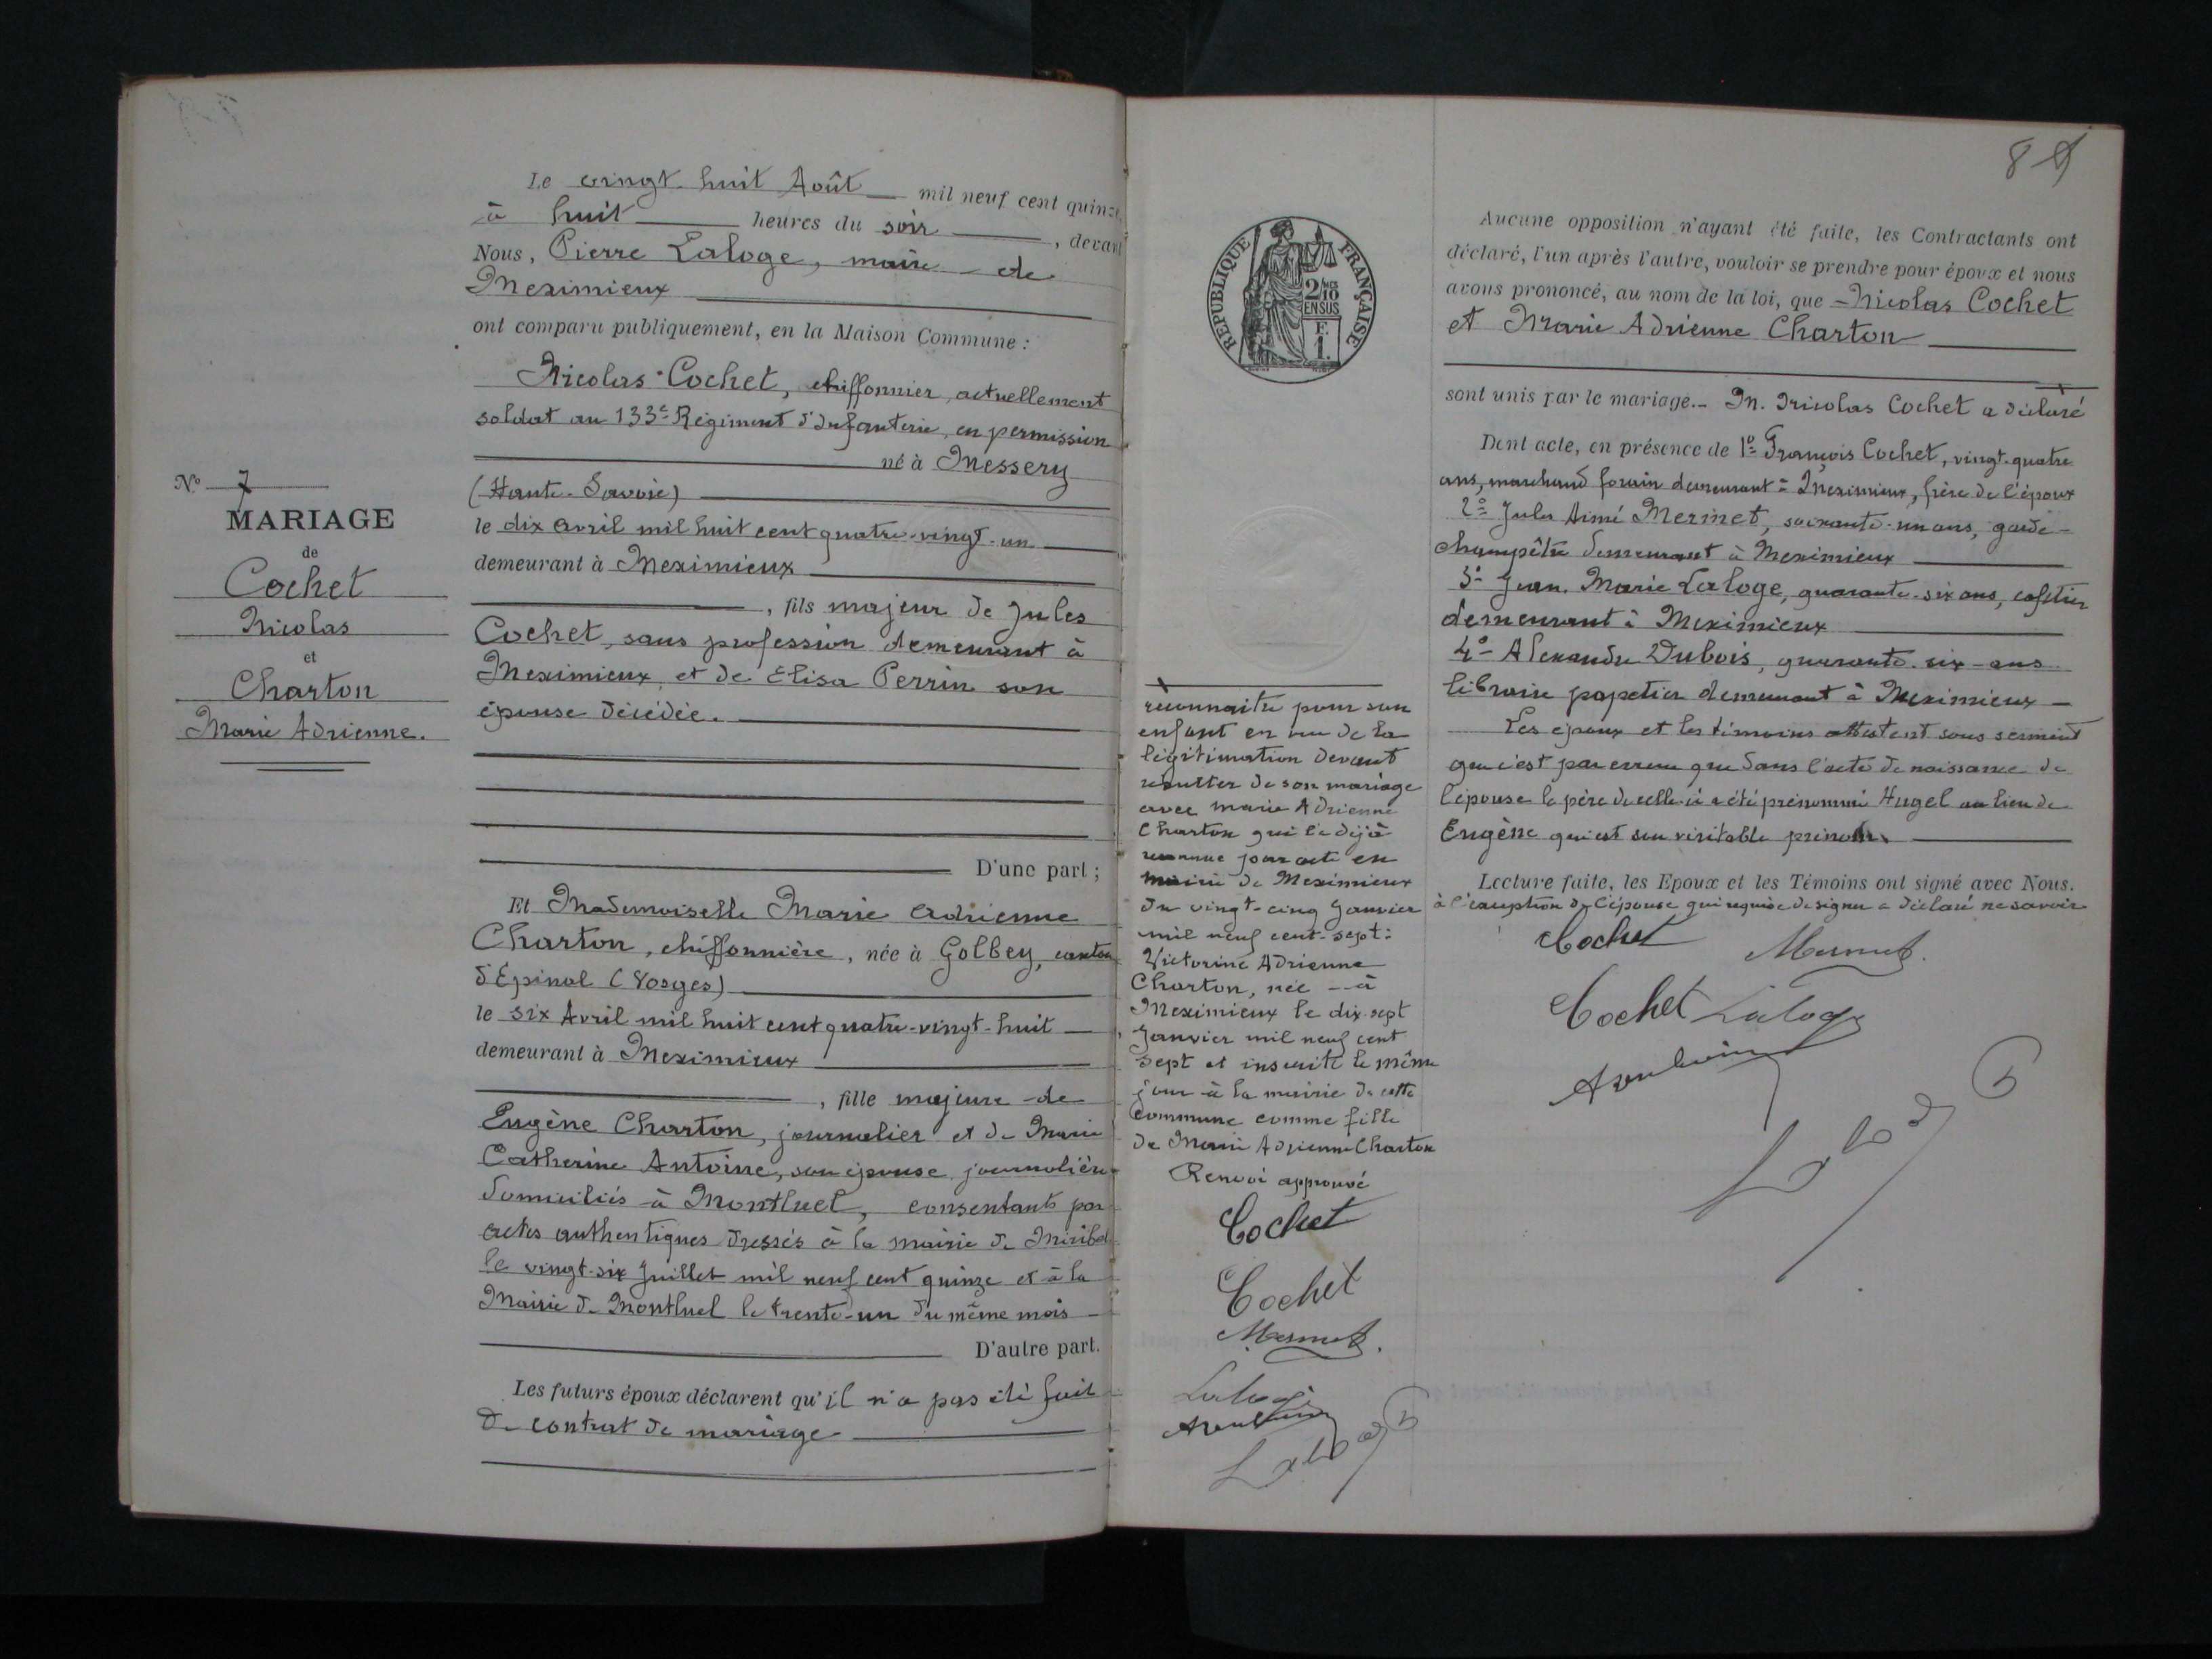 Le vingt-huit Août mil neuf cent quinze
à huit heures du soir, devant
Nous, Pierre Laloge, maire de
Meximieux
ont comparu publiquement, en la Maison Commune :
Nicolas Cochet, chiffonnier, actuellement
soldat au 133e Régiment d'Infanterie, en permission
né à Messery
(Haute-Savoie)
le dix avril mil huit cent quatre-vingt-un
demeurant à Meximieux
, fils majeur de Jules
Cochet, sans profession demeurant à
Meximieux, et de Elisa Perrin son
épouse décédée.
D'une part ;
Et Mademoiselle Marie Adrienne
Charton, chiffonnière, née à Golbey, canton
d'Epinal (Vosges)
le six Avril mil huit cent quatre-vingt-huit
demeurant à Meximieux
, fille majeure de
Eugène Charton, journalier et de Marie
Catherine Antoine, son épouse, journalière
domiciliés à Montluel, consentants par
actes authentiques dressés à la mairie de Miribel
le vingt-six Juillet mil neuf cent quinze et à la
Mairie de Montluel le trente-un du même mois
D'autre part.
Les futurs époux déclarent qu'il n'a pas été fait
de contrat de mariage
No 7
MARIAGE
de
Cochet
Nicolas
et
Charton
Marie Adrienne.
REPUBLIQUE FRANÇAISE
2/10
EN SUS
F.
1.
reconnaitre pour son
enfant en vue de la
légitimation devant
résulter de son mariage
avec Marie Adrienne
Charton qui l'a déjà
reconnue par acte en
mairie de Meximieux
du vingt-cinq Janvier
mil neuf cent-sept :
Victorine Adrienne
Charton, née à
Meximieux le dix-sept
Janvier mil neuf cent
sept et inscrite le même
jour à la mairie de cette
Commune comme fille
de Marie Adrienne Charton
Renvoi approuvé
Cochet
Cochet
Mermet.
Laloge
Laloge
8
Aucune opposition n'ayant été faite, les Contractants ont
déclaré, l'un après l'autre, vouloir se prendre pour époux et nous
avons prononcé, au nom de la loi, que Nicolas Cochet
et Marie Adrienne Charton
sont unis par le mariage. M. Nicolas Cochet a déclaré
Dont acte, en présence de 1o François Cochet, vingt-quatre
ans, marchand forain demeurant à Meximieux, frère de l'époux
2o Jules Aimé Mermet, soixante-un ans, garde-
champêtre demeurant à Meximieux
3o Jean-Marie Laloge, quarante-six ans, cafetier
demeurant à Meximieux
4o Alexandre Dubois, quarante-six-ans
libraire papetier demeurant à Meximieux
Les époux et les témoins attestent sous serment
que c'est par erreur que dans l'acte de naissance de
l'épouse le père de celle-ci a été prénommé Hugel au lieu de
Eugène qui est son véritable prénom.
Lecture faite, les Epoux et les Témoins ont signé avec Nous.
à l'exception de l'épouse qui requise de signer a déclaré ne savoir
Cochet Mermet.
Cochet Laloge
Laloge